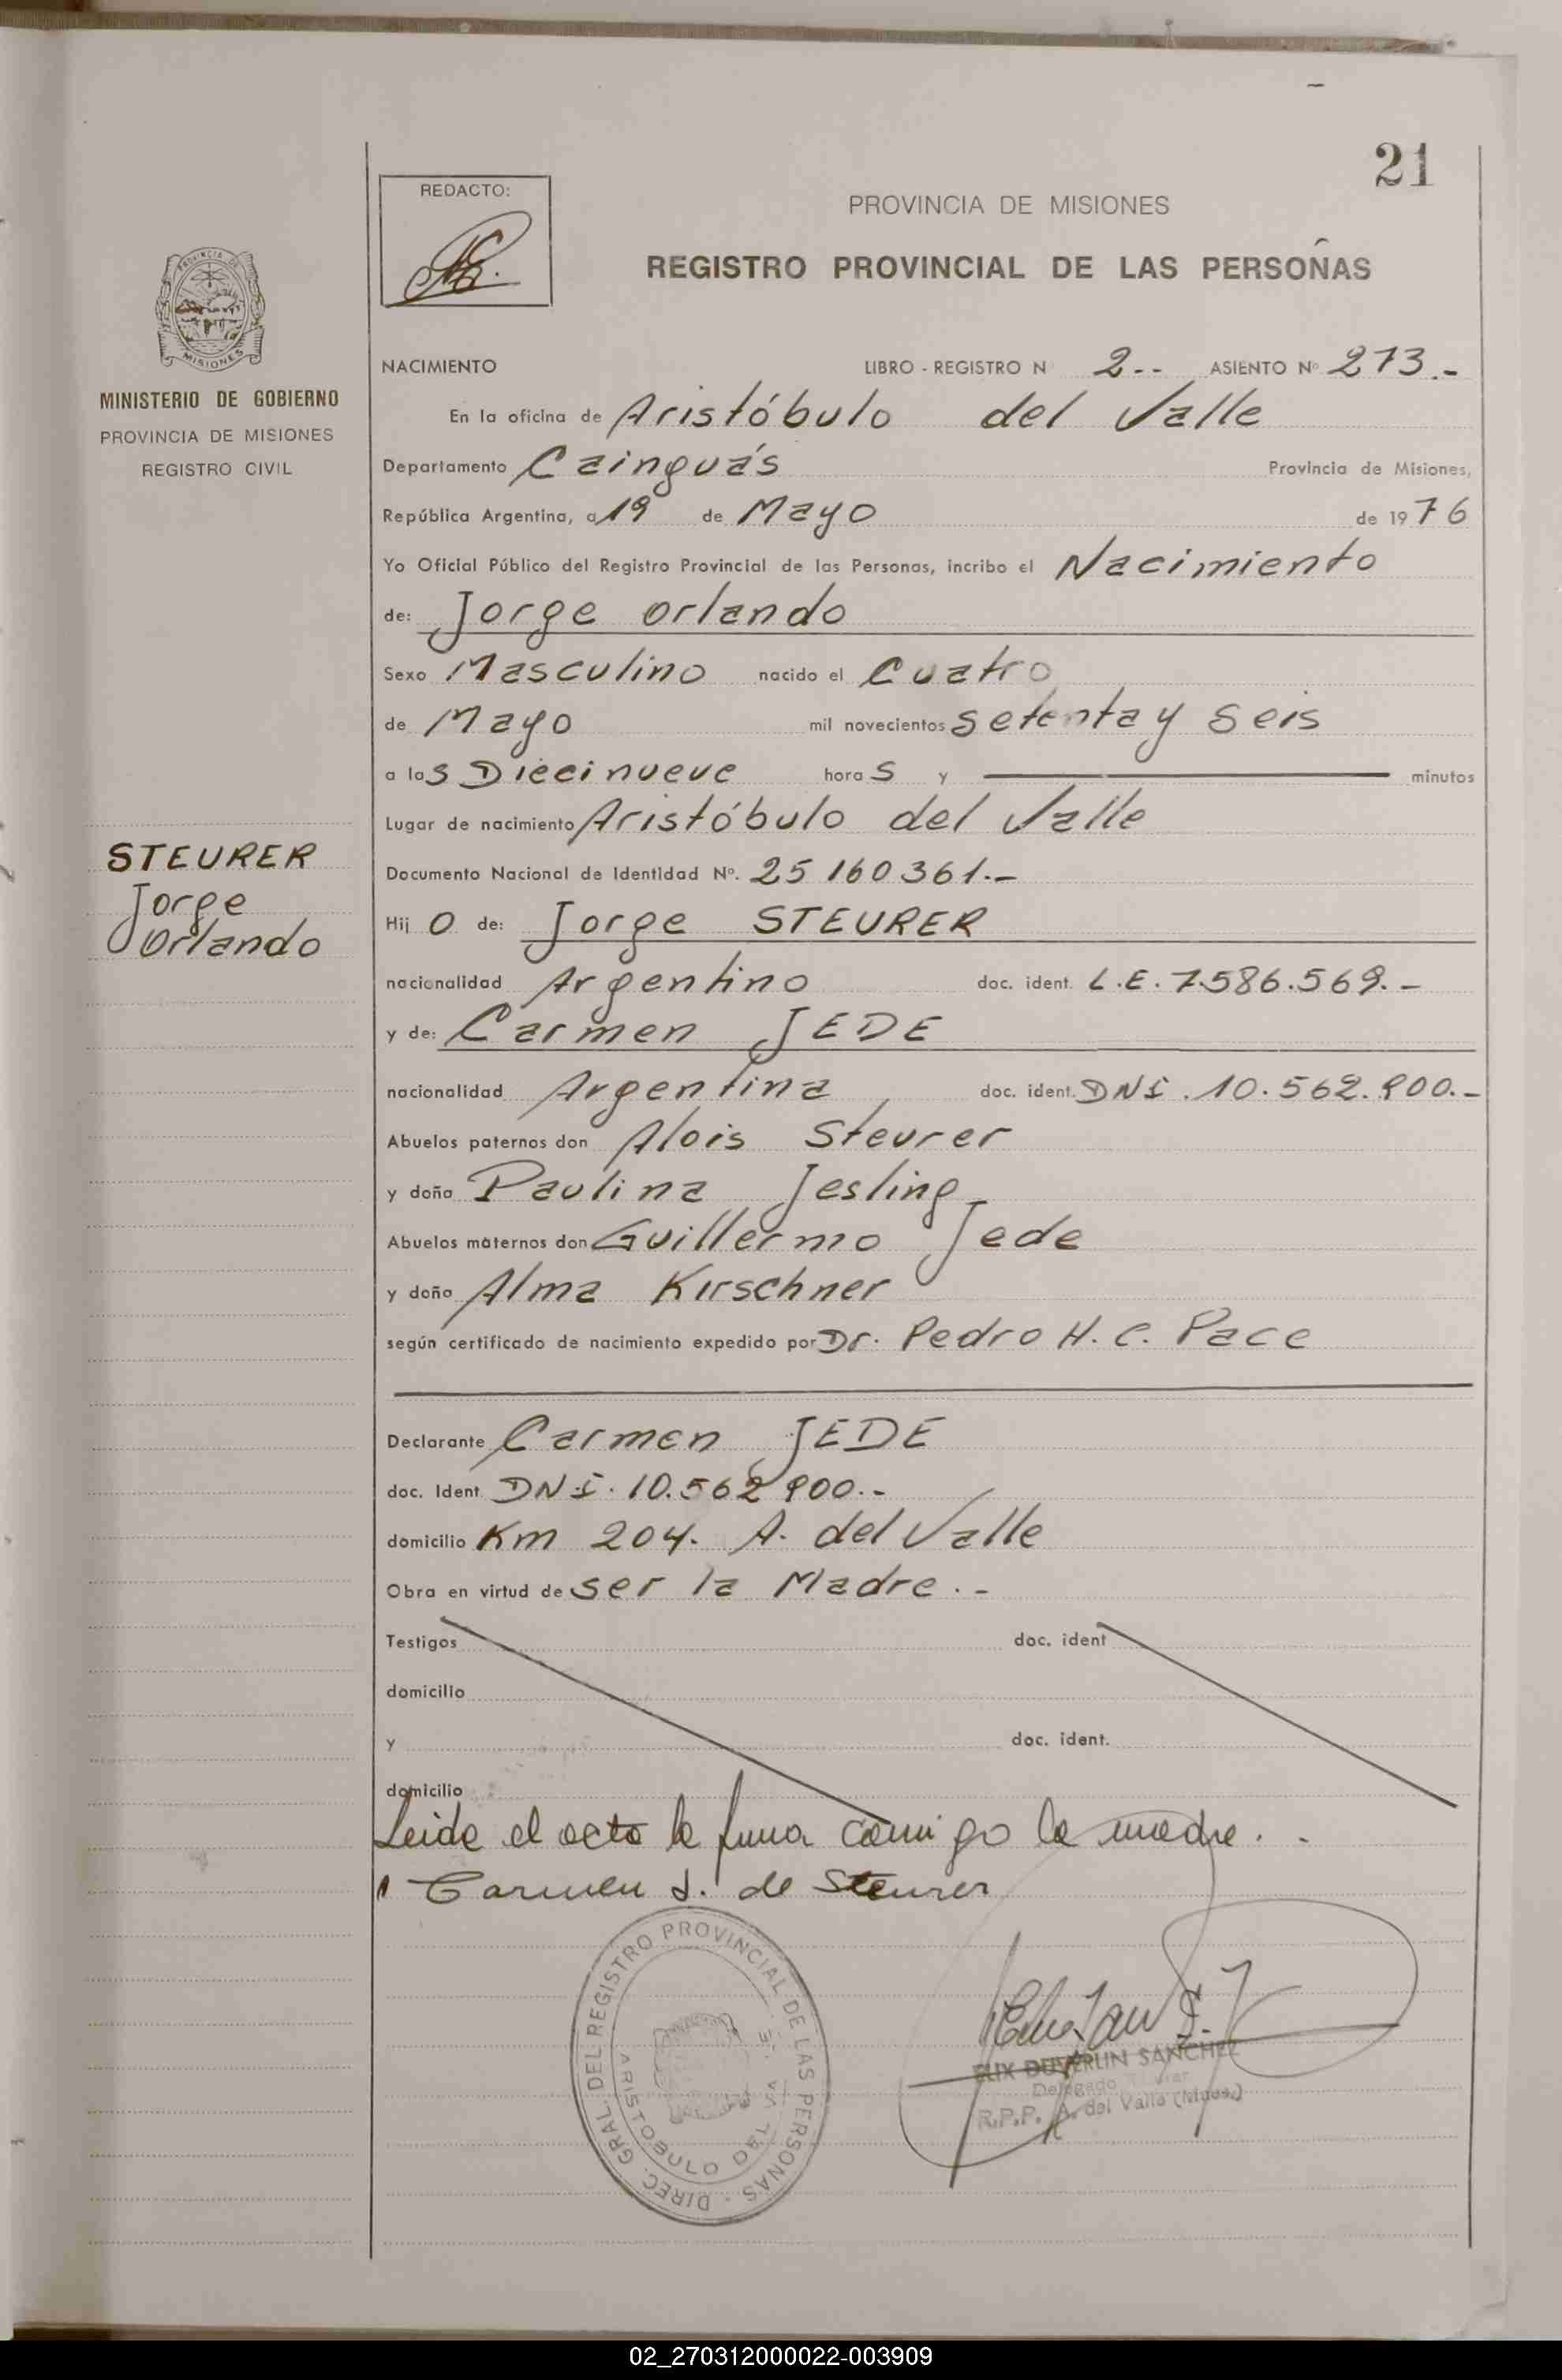 21
REDACTO:
PROVINCIA DE MISIONES
REGISTRO PROVINCIAL DE LAS PERSONAS
MISIONES
MINISTERIO DE GOBIERNO
PROVINCIA DE MISIONES
REGISTRO CIVIL
NACIMIENTO LIBRO - REGISTRO N 2-- ASIENTO Nº 273.-
En la oficina de Aristóbulo del Valle
Departamento Cainguás Provincia de Misiones,
República Argentina, a 19 de Mayo de 1976
Yo Oficial Público del Registro Provincial de las Personas, incribo el Nacimiento
de: Jorge Orlando
Sexo Masculino nacido el Cuatro
de Mayo mil novecientos setenta y seis
a las Diecinueve horas y minutos
Lugar de nacimiento Aristóbulo del Valle
STEURER
Jorge
Orlando
Documento Nacional de Identidad Nº. 25160361.-
Hijo de: Jorge STEURER
nacionalidad Argentino doc. ident. L.E. 7.586.569.-
y de: Carmen JEDE
nacionalidad Argentina doc. ident. DNI. 10.562.900.-
Abuelos paternos don Alois Steurer
y doña Paulina Jesling
Abuelos maternos don Guillermo Jede
y doña Alma Kirschner
según certificado de nacimiento expedido por Dr. Pedro H. C. Pace
Declarante Carmen JEDE
doc. Ident DNI. 10.562900.-
domicilio Km 204. A. del Valle
Obra en virtud de ser la Madre.-
Testigos doc. ident
domicilio
y doc. ident.
domicilio
Leida el acto la firma conmigo la madre.-
Carmen J. de Steurer
DIREC. GRAL. DEL REGISTRO PROVINCIAL DE LAS PERSONAS
ARISTOBULO DEL VALLE
DUVERLIN SANCHEZ
Delegado
R.P.P. A. del Valle (Mnes.)
02_270312000022-003909